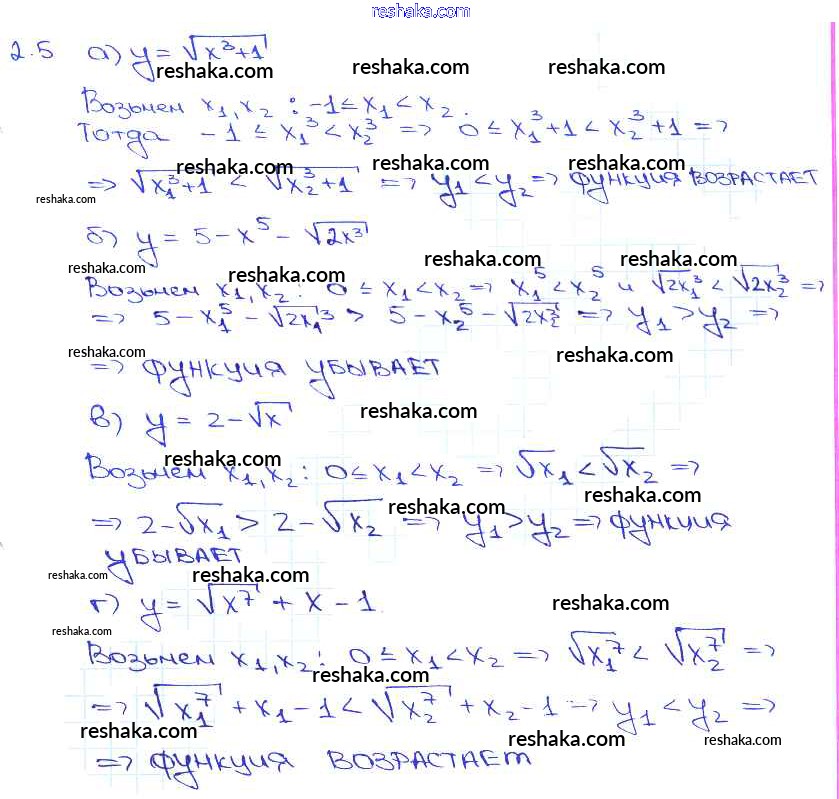 reshaka.com
2.5 а) y = √(x³+1)
reshaka.com reshaka.com reshaka.com
Возьмем x₁, x₂ : -1 ≤ x₁ < x₂.
Тогда -1 ≤ x₁³ < x₂³ => 0 ≤ x₁³+1 < x₂³+1 =>
reshaka.com reshaka.com reshaka.com
=> √(x₁³+1) < √(x₂³+1) => y₁ < y₂ => функция ВОЗРАСТАЕТ
reshaka.com
б) y = 5 - x⁵ - √(2x³)
reshaka.com reshaka.com reshaka.com reshaka.com
Возьмем x₁, x₂ : 0 ≤ x₁ < x₂ => x₁⁵ < x₂⁵ и √(2x₁³) < √(2x₂³) =>
=> 5 - x₁⁵ - √(2x₁³) > 5 - x₂⁵ - √(2x₂³) => y₁ > y₂ =>
reshaka.com reshaka.com
=> функция УБЫВАЕТ
в) y = 2 - √x
reshaka.com
reshaka.com
Возьмем x₁, x₂ : 0 ≤ x₁ < x₂ => √x₁ < √x₂ =>
reshaka.com reshaka.com
=> 2 - √x₁ > 2 - √x₂ => y₁ > y₂ => функция
УБЫВАЕТ
reshaka.com reshaka.com
г) y = √(x⁷) + x - 1
reshaka.com
reshaka.com
Возьмем x₁, x₂ : 0 ≤ x₁ < x₂ => √(x₁⁷) < √(x₂⁷) =>
reshaka.com reshaka.com
=> √(x₁⁷) + x₁ - 1 < √(x₂⁷) + x₂ - 1 => y₁ < y₂ =>
reshaka.com reshaka.com reshaka.com
=> функция ВОЗРАСТАЕТ